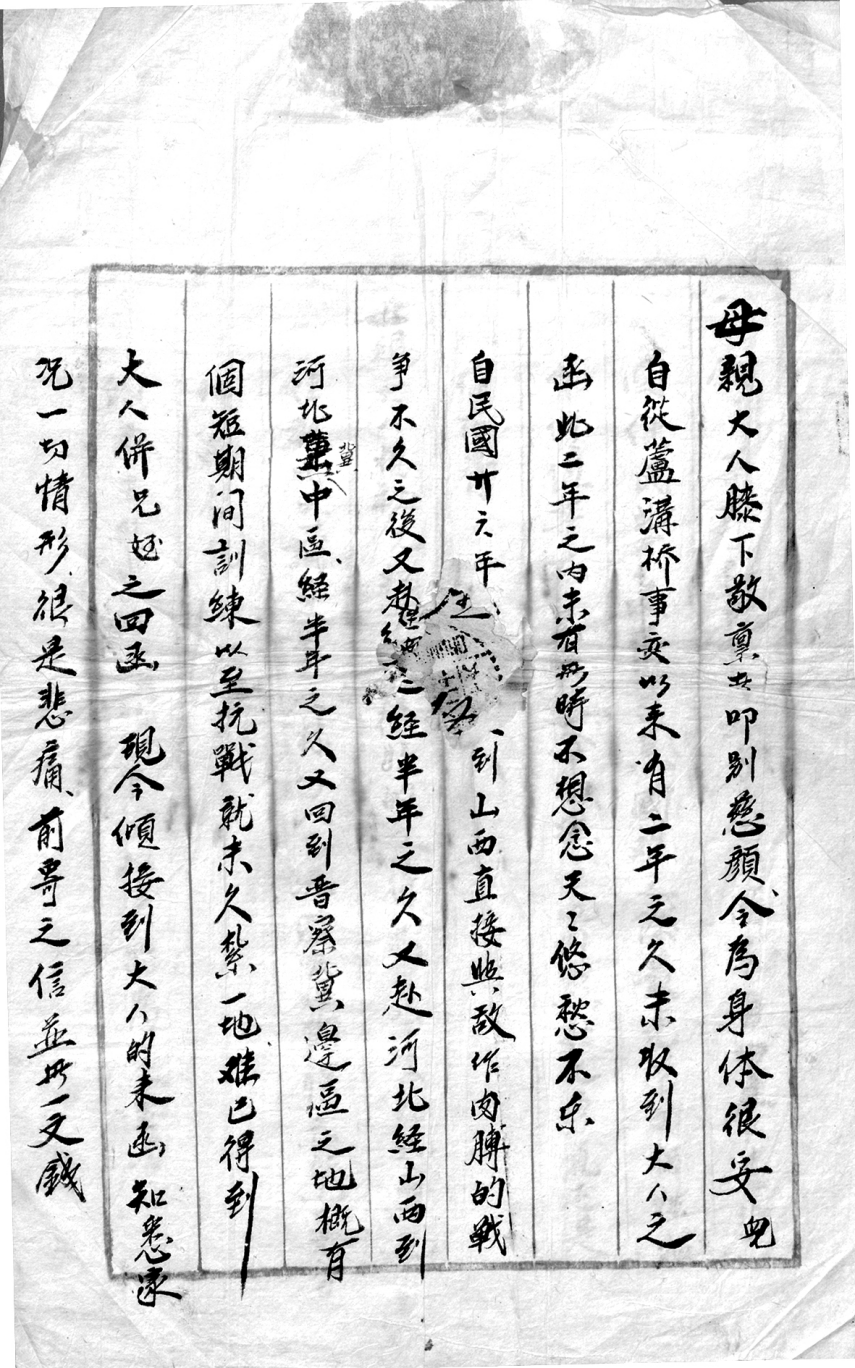 母親大人膝下敬禀者叩别慈顔令為身体很妥兒
自從蘆溝桥事变以来有二年之久未收到大人之
函此二年之内未有無時不想念天々悠愁不乐
自民國廿六年 到山西直接與敌作肉膊的戰
争不久之後又赴 经半年之久又赴河北経山西到
河北冀中區、経半年之久又回到晋察冀邊區之地概有
個短期间訓練以至抗戰就未久紮一地难已得到
大人併兄姪之回函 現今傾接到大人的来函知悉家
况一切情形很是悲痛、前寄之信並無一文錢